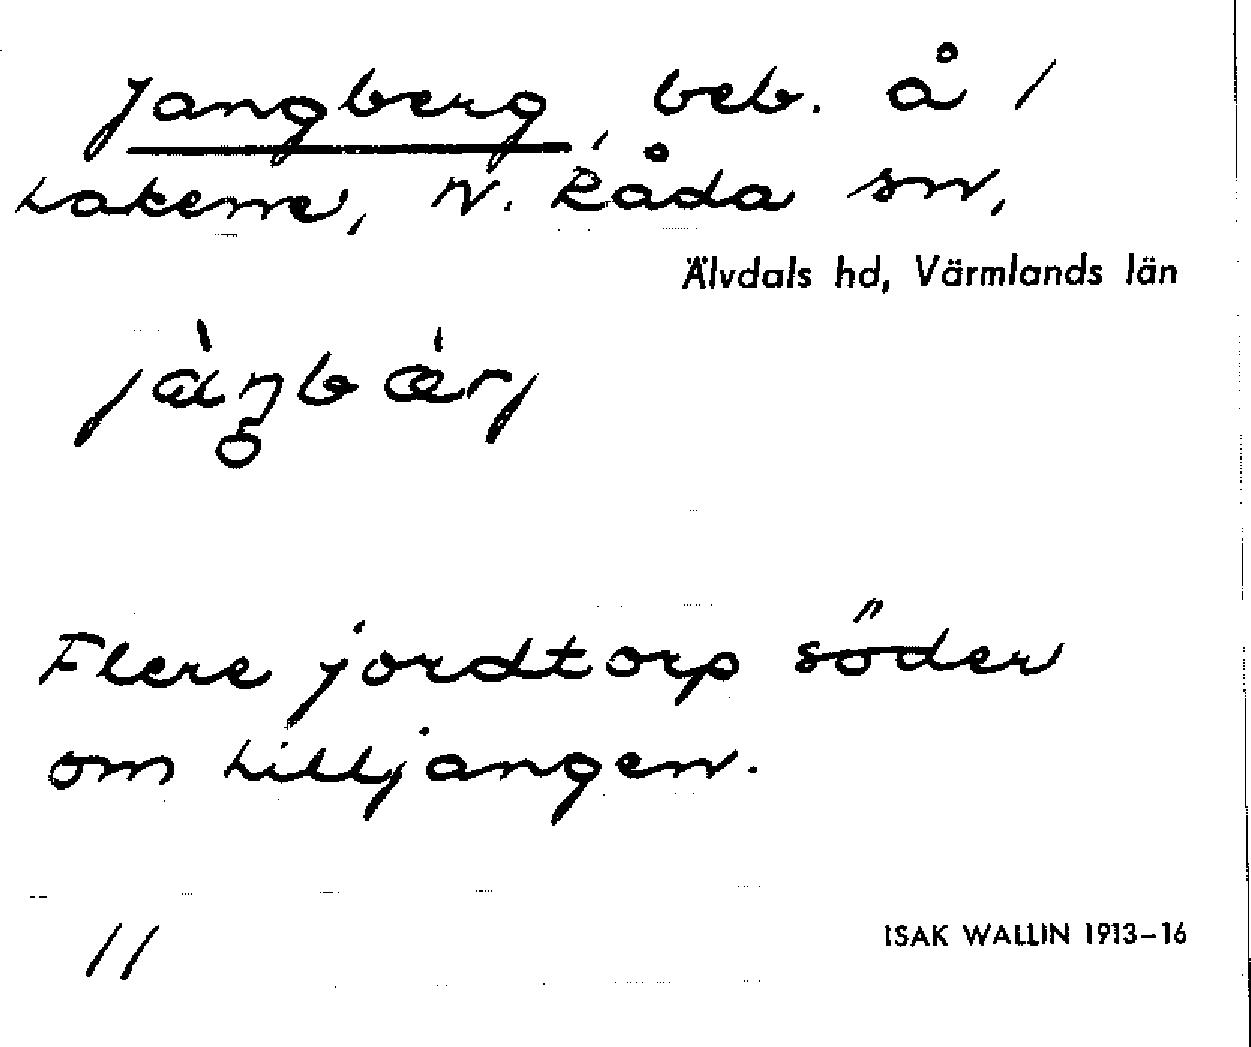 Jangberg, beb. å /
Lakene, N. Råda sn,
Älvdals hd, Värmlands län
Flere jordtorp söder
om Lilljangen.
11
ISAK WALLIN 1913–16